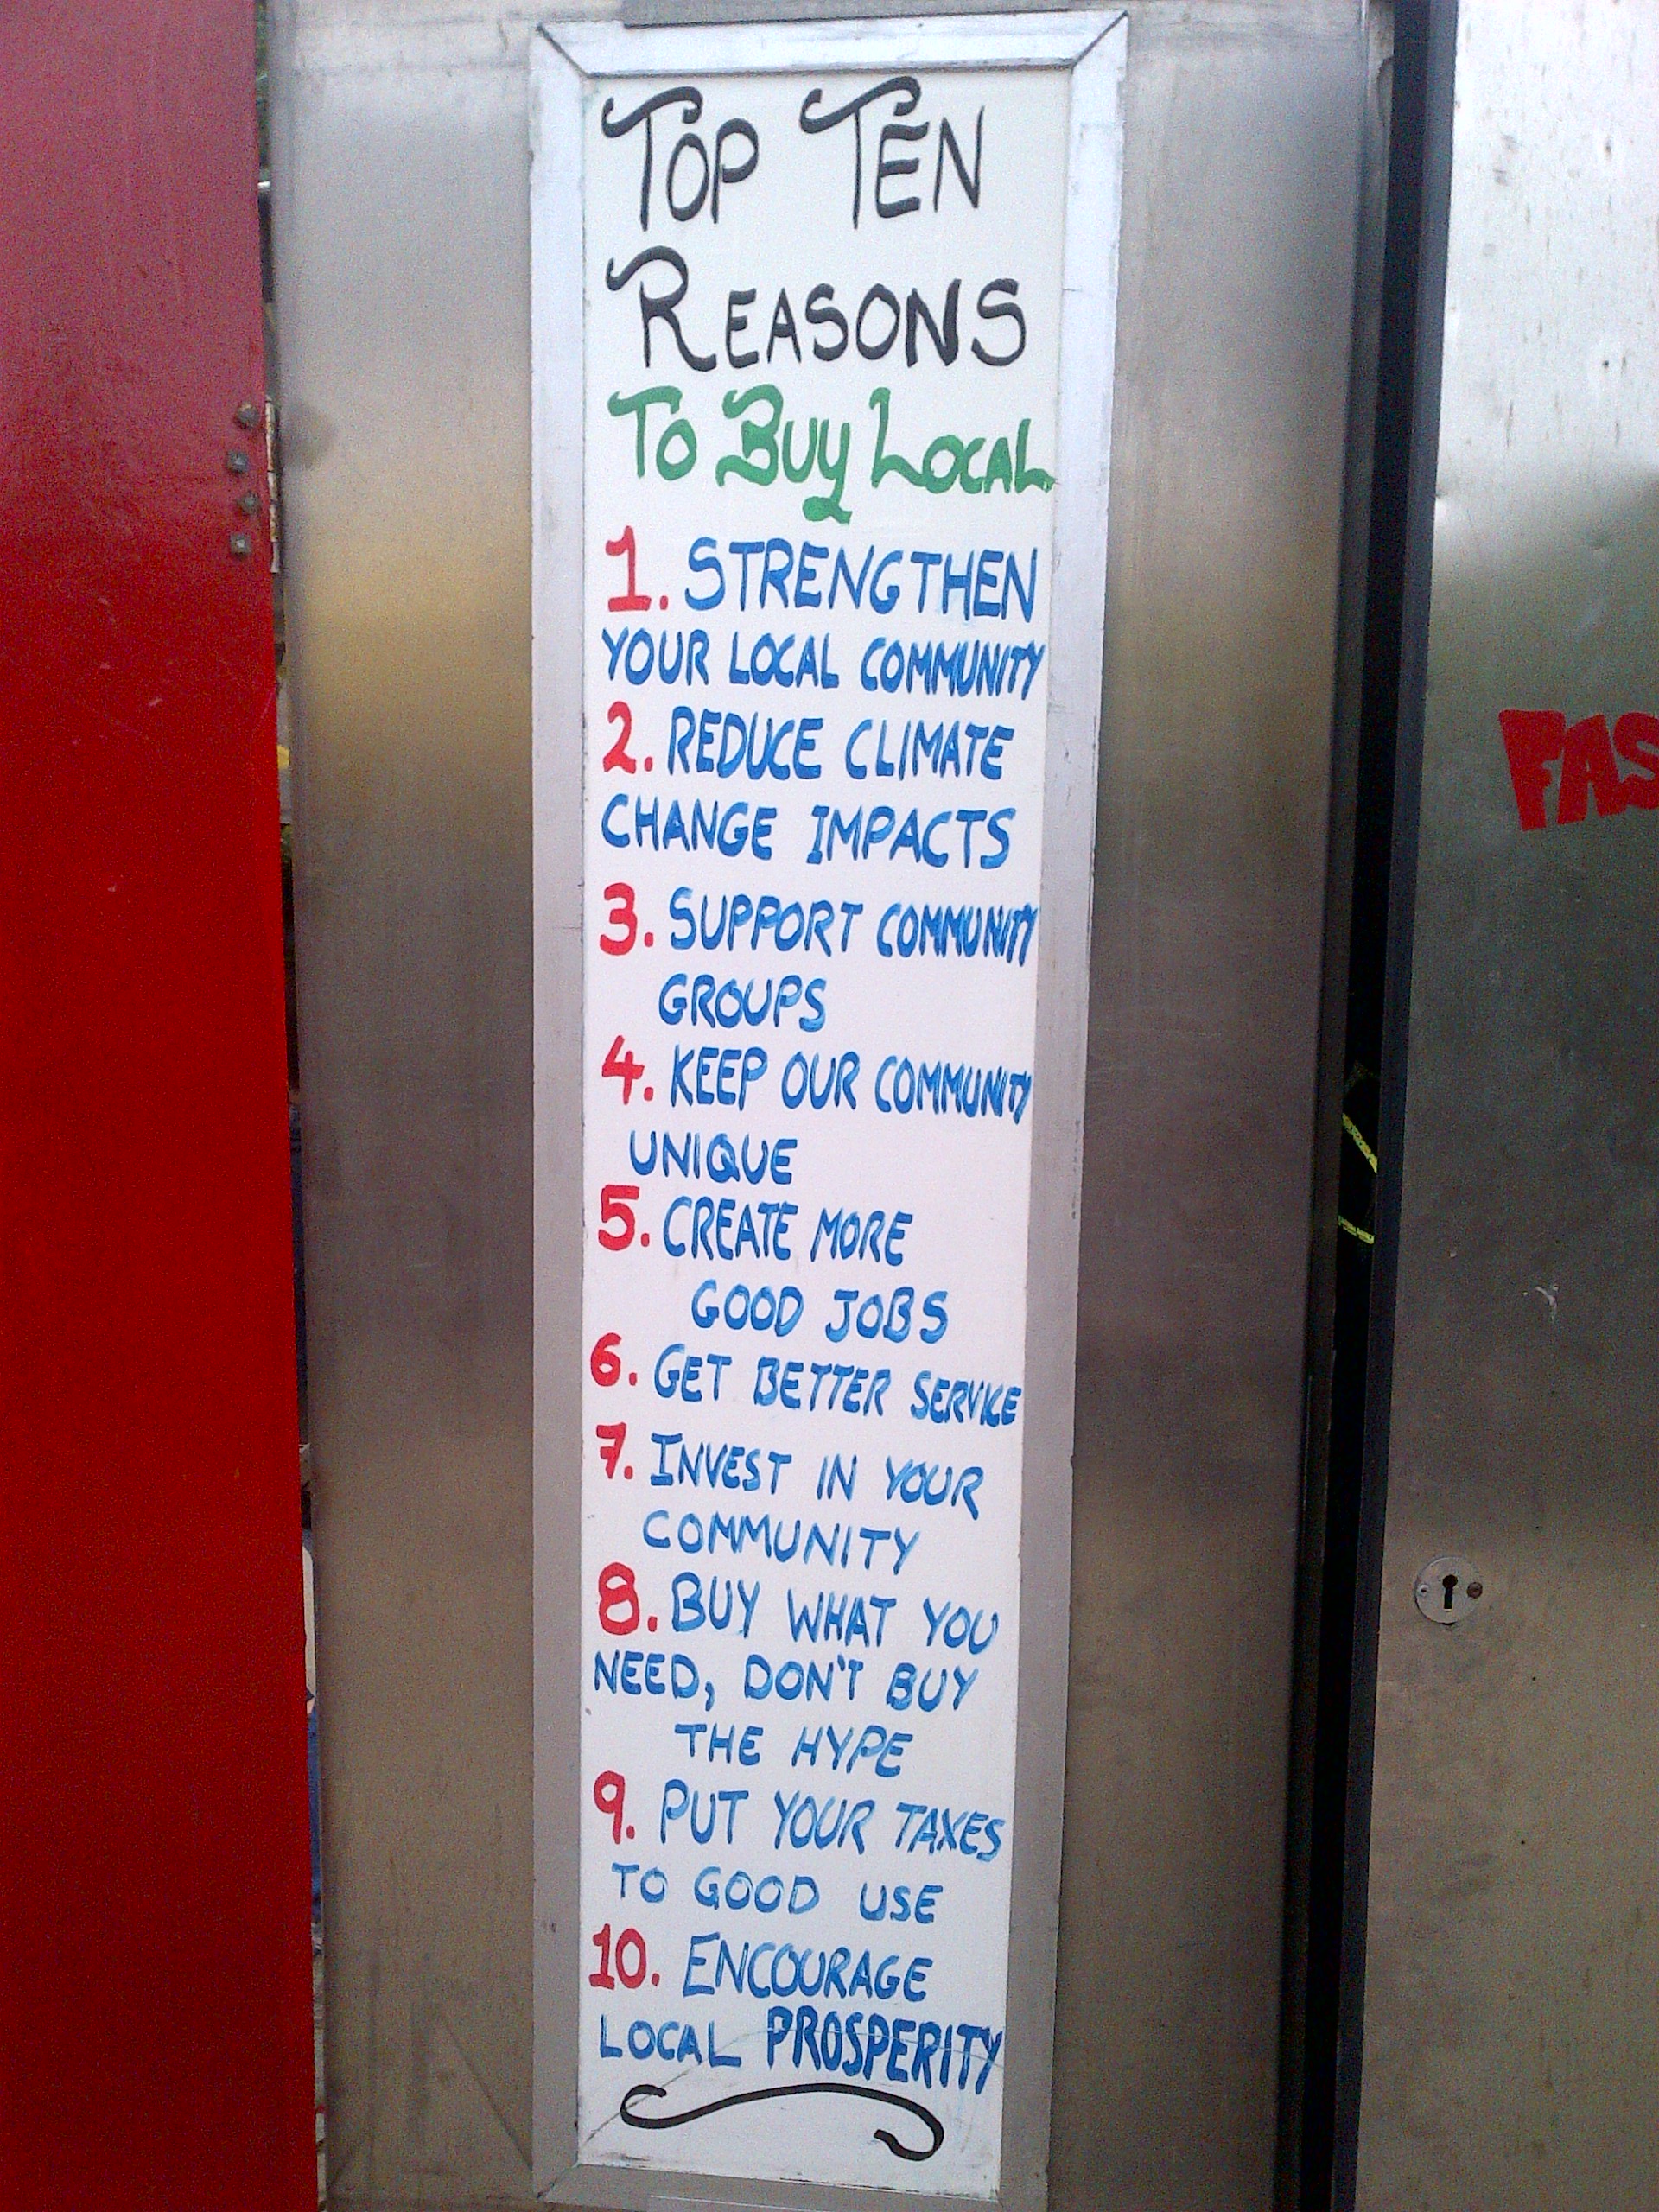 TOP TEN
REASONS
TO BUY LOCAL
1. STRENGTHEN
YOUR LOCAL COMMUNITY
2. REDUCE CLIMATE
CHANGE IMPACTS
3. SUPPORT COMMUNITY
GROUPS
4. KEEP OUR COMMUNITY
UNIQUE
5. CREATE MORE
GOOD JOBS
6. GET BETTER SERVICE
7. INVEST IN YOUR
COMMUNITY
8. BUY WHAT YOU
NEED, DON'T BUY
THE HYPE
9. PUT YOUR TAXES
TO GOOD USE
10. ENCOURAGE
LOCAL PROSPERITY
FAS